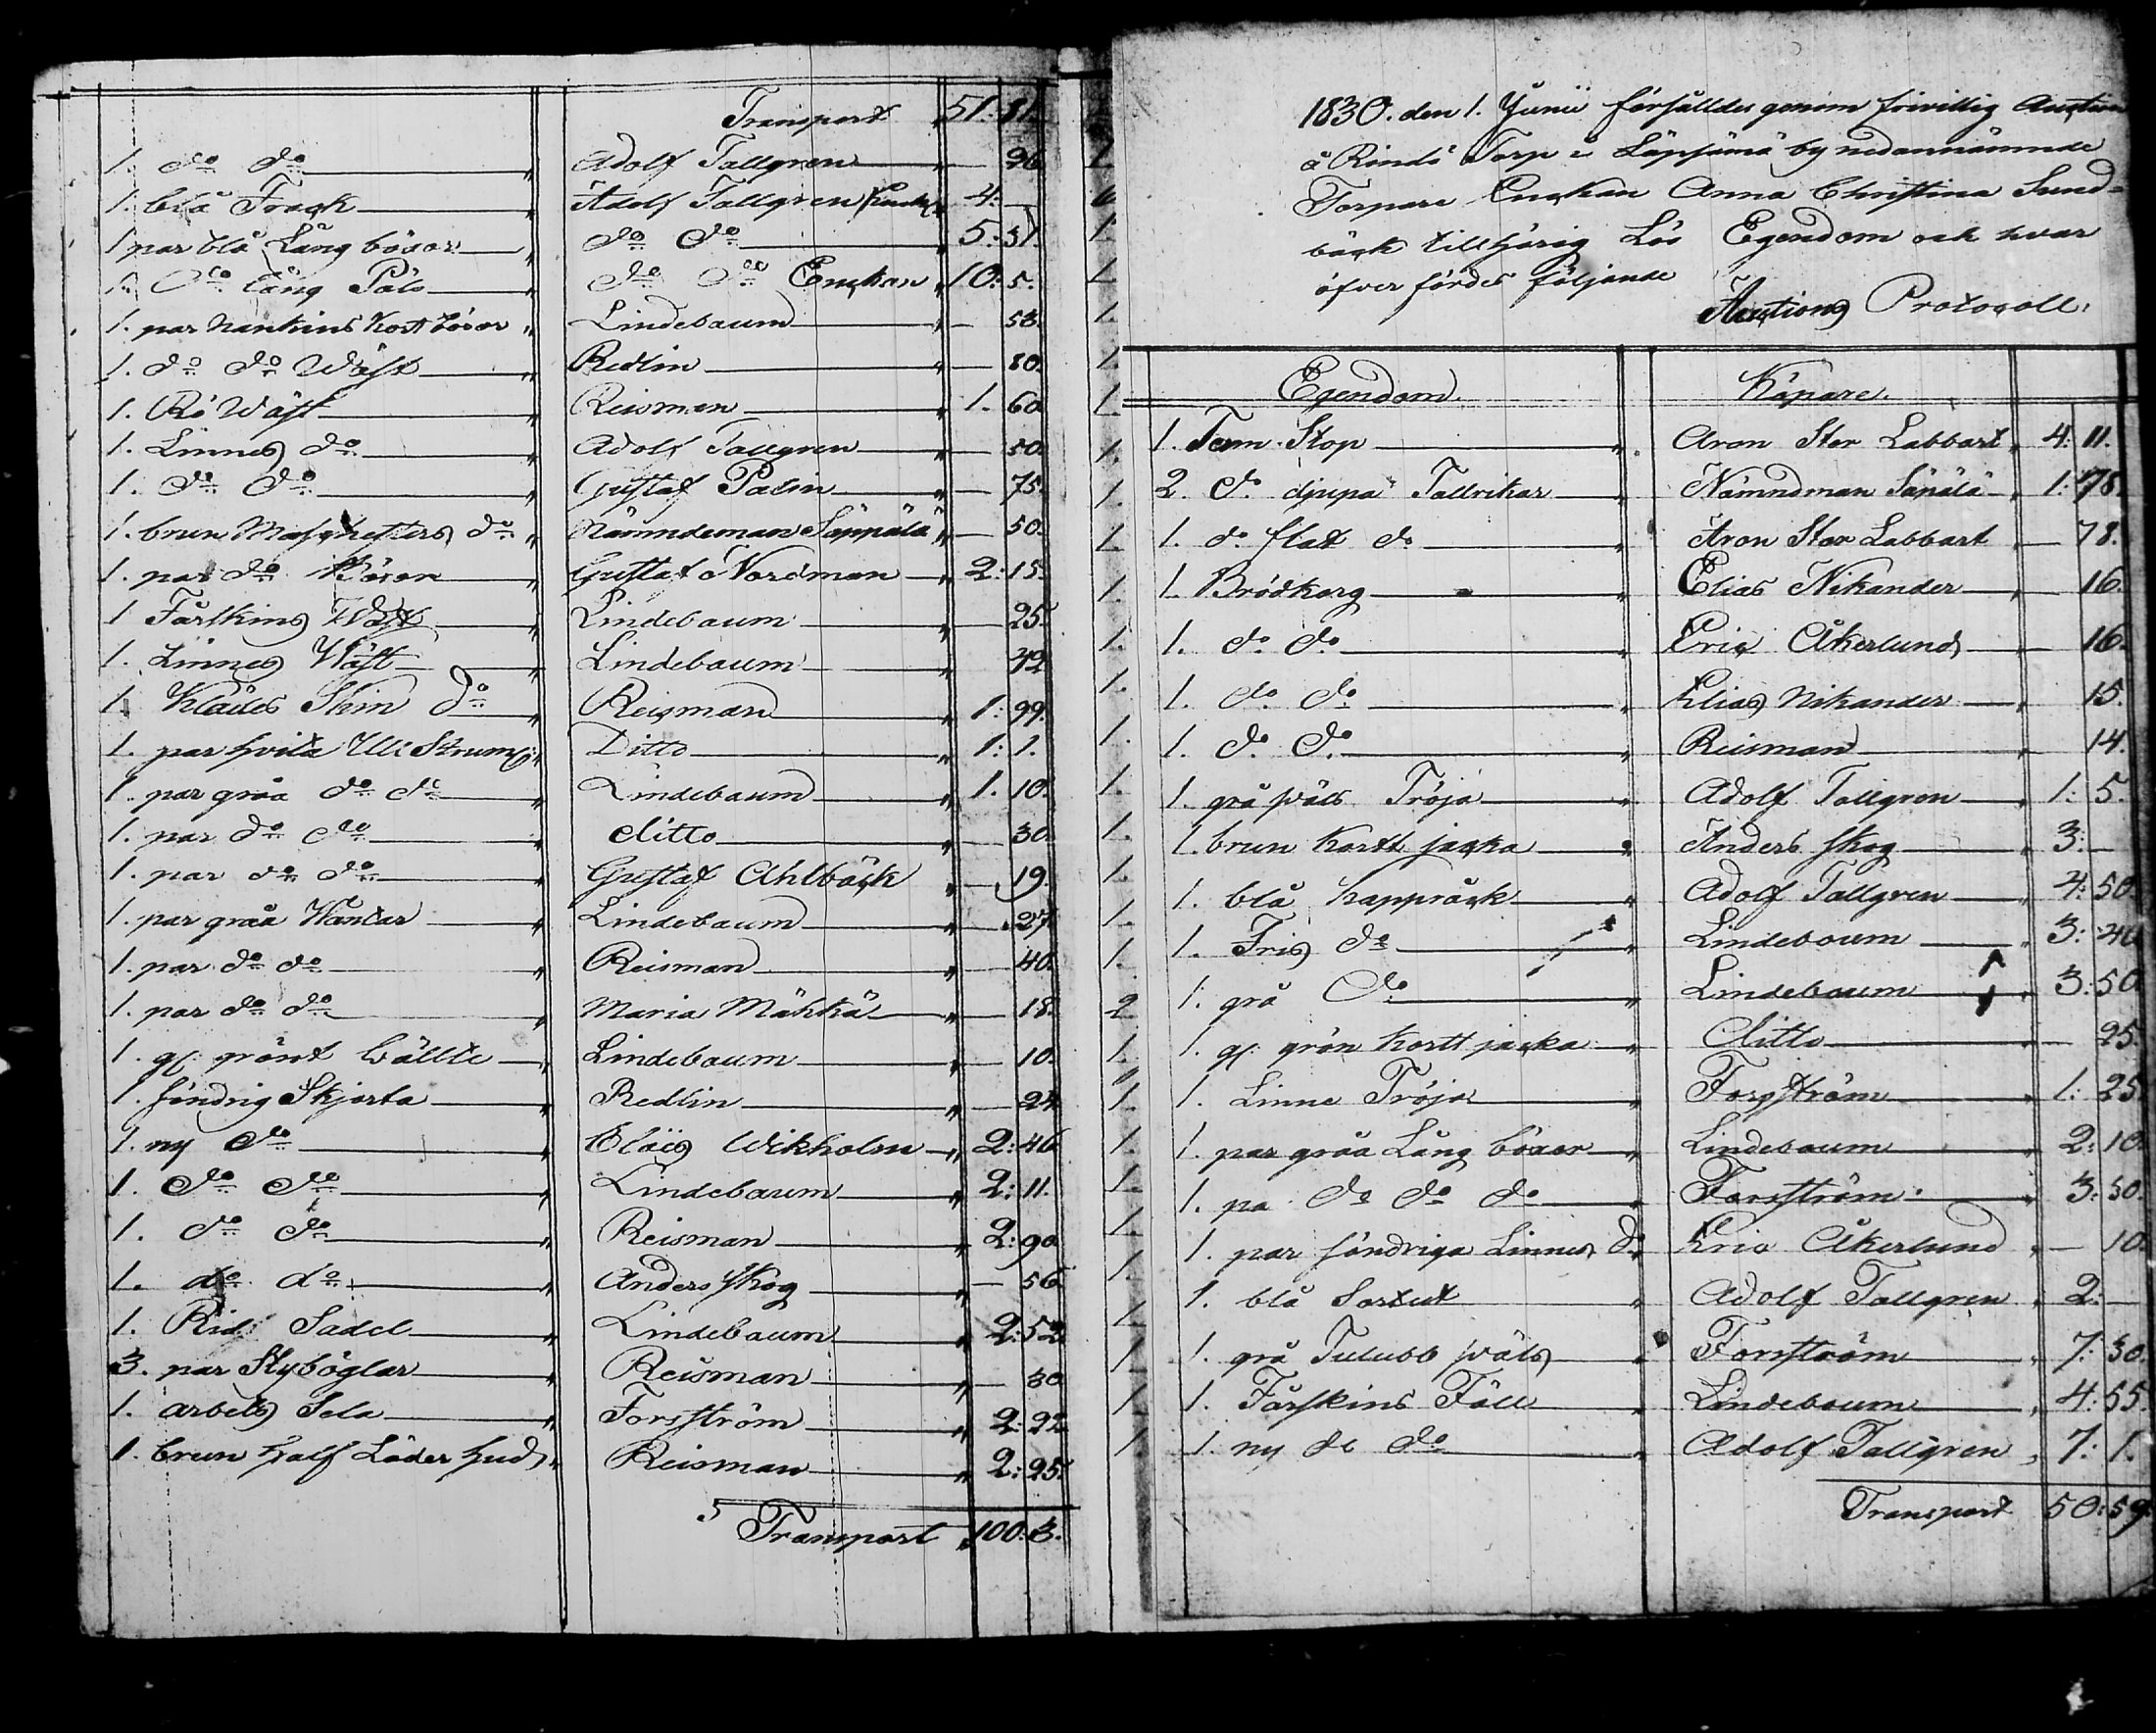 Transport 51:81.
1. do do Adolf Tallgren — 26
1. blå Frack Adolf Tallgren 4: —
1 par blå Lång böxor do do 5:51.
1. do lång Päls do do Enckan 10:5.
1. par nankins Kort böxor Lindebaum — 53.
1. do do Wäst Redlin — 80.
1. Rö Wäst Reisman 1. 60
1. Linnes do Adolf Tallgren — 50.
1. do do Gustaf Palin — 75.
1. brun do Nämndeman Säppälä — 50.
1. par do Böxor Gustaf Nordman 2:15.
1 Fårskins Wäst Lindebaum — 25.
1. Linnes Wäst Lindebaum — 42
1. Klädes Skin do Reisman 1:99.
1. par hvita Ull Strump: Ditto 1:1.
1. par gråa do do Lindebaum 1. 10.
1. par do do ditto — 30.
1. par do do Gustaf Ahlbäck — 19.
1. par gråa Wantar Lindebaum — 27.
1. par do do Reisman — 40.
1. par do do Maria Mähkä — 18.
1. gl: grönt bällte Lindebaum — 10.
1. söndrig Skjorta Redlin — 24
1. ny do Wikholm 2:46
1. do do Lindebaum 2:11.
1. do do Reisman 2:90
1. do do Anders Skog — 56
1. Rid Sadel Lindebaum 2:52
3. par Styböglar Reisman — 30
1. arbets Sela Forsström 2:22
1. brun half Läder hud Reisman 2:25.
Transport 100:3.
1830. den 1. Junii försålldes genom frivillig Auction
å Rindö Torp i Läpsämä by nedannämnde
Torpare Enckan Anna Christina Sund=
bäck tillhörig Lös Egendom och hvar
öfver fördes följande
Auctions Protocoll.
Egendom. Köpare.
1. Tenn Stop Aron Stor Labbart 4:11.
2. do djupa Tallrikar Nämndman Säpälä 1:78.
1. do flat do Aron Stor Labbart — 78.
1. Brödkorg Elias Nikander — 16.
1. do do Eric Åkerlund — 16.
1. do do Elias Nikander — 15.
1. do do Reisman 14.
1. grå päls Tröja Adolf Tallgren 1:5.
1. brun kortt jacka Anders Skog 3: —
1. blå kappråck Adolf Tallgren 4:50.
1. Fris do Lindebaum 3:40
1. grå do Lindebaum 3:50
1. gl: grön kortt jacka Ditto — 25.
1. Linne Tröja Forsström 1:25
1. par gråa Lång böxor Lindebaum 2:10.
1. pa do do do Forsström. 3:50.
1. par söndriga Linnes do Eric Åkerlund — 10.
1. blå Sortut Adolf Tallgren 2: —
1. grå Tulubb päls Forsström 7:30.
1. Fårskins Fäll Lindebaum 4:55.
1. ny do do Adolf Tallgren 7:1.
Transport 50:59.